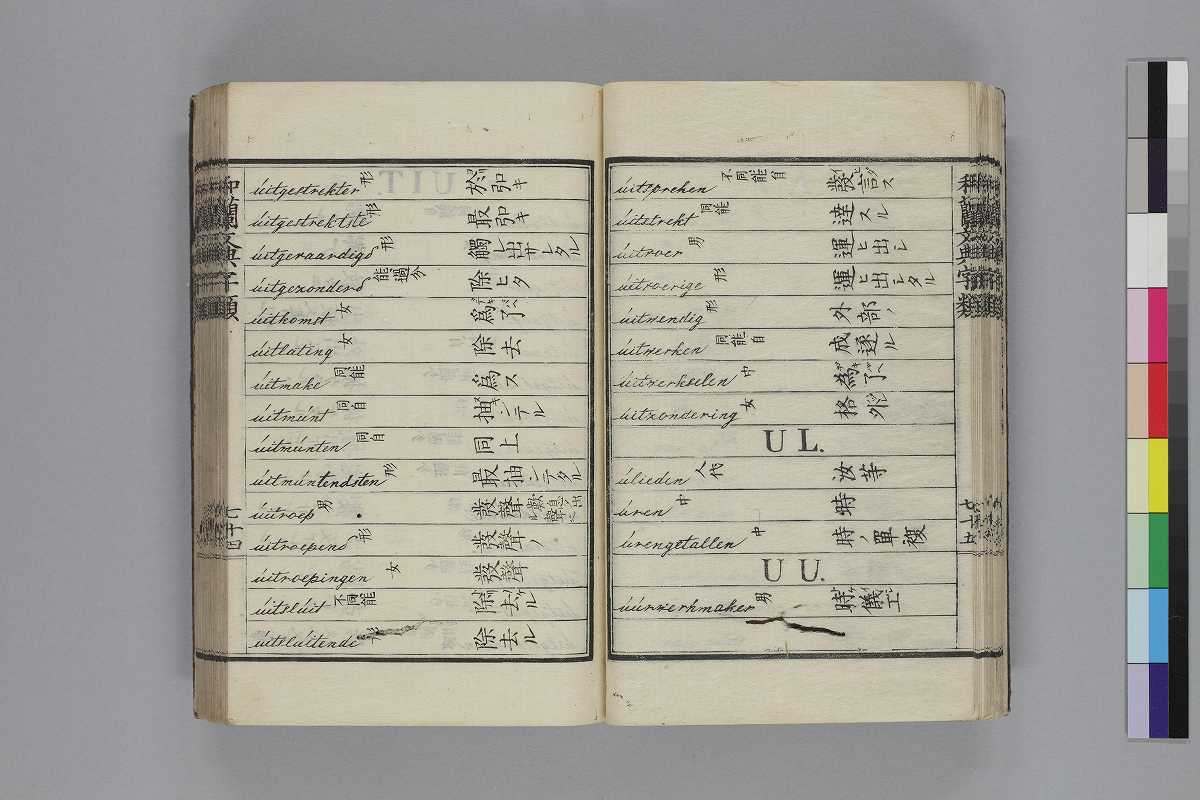 úitgestrekter 形 於引キ
úitgestrektste 形 最引キ
úitgeraardigd 形 觸レ出サレタル
úitgezonderd 能過分 除ヒタ
úitkomst 女 為了
úitlating 女 除去
úitmake 同能 為ス
úitmúnt 同自 抽ンテル
úitmúnten 同自 同上
úitmúntendsten 形 最抽ンテタル
úitroep 男 發聲
úitroepend 形 發聲ノ
úitroepingen 女 發聲
úitslúit 不同能 除去ル
úitslúitende 形 除去ル
úitspreken 不同能自 發言ス
úitstrekt 同能 達スル
úitvoer 男 運ヒ出シ
úitvoerige 形 運ヒ出シタル
úitwendig 形 外部ノ
úitwerken 同能自 成逐ル
úitwerkselen 中 為了
úitzondering 女 格外
UL.
úlieden 人代 汝等
úren 中 時
úrengetallen 中 時ノ單複
UU.
úúrwerkmaker 男 時儀工
和蘭文典字類
七十五